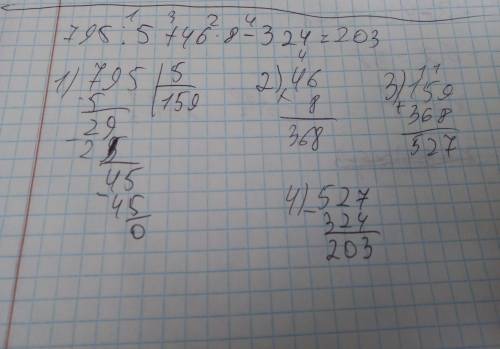 795 : 5 + 46 · 8 - 324 = 203
1) 795 | 5
- 5 159
29
- 25
45
- 45
0
2) 46
× 8
368
3) 159
+ 368
527
4) - 527
324
203